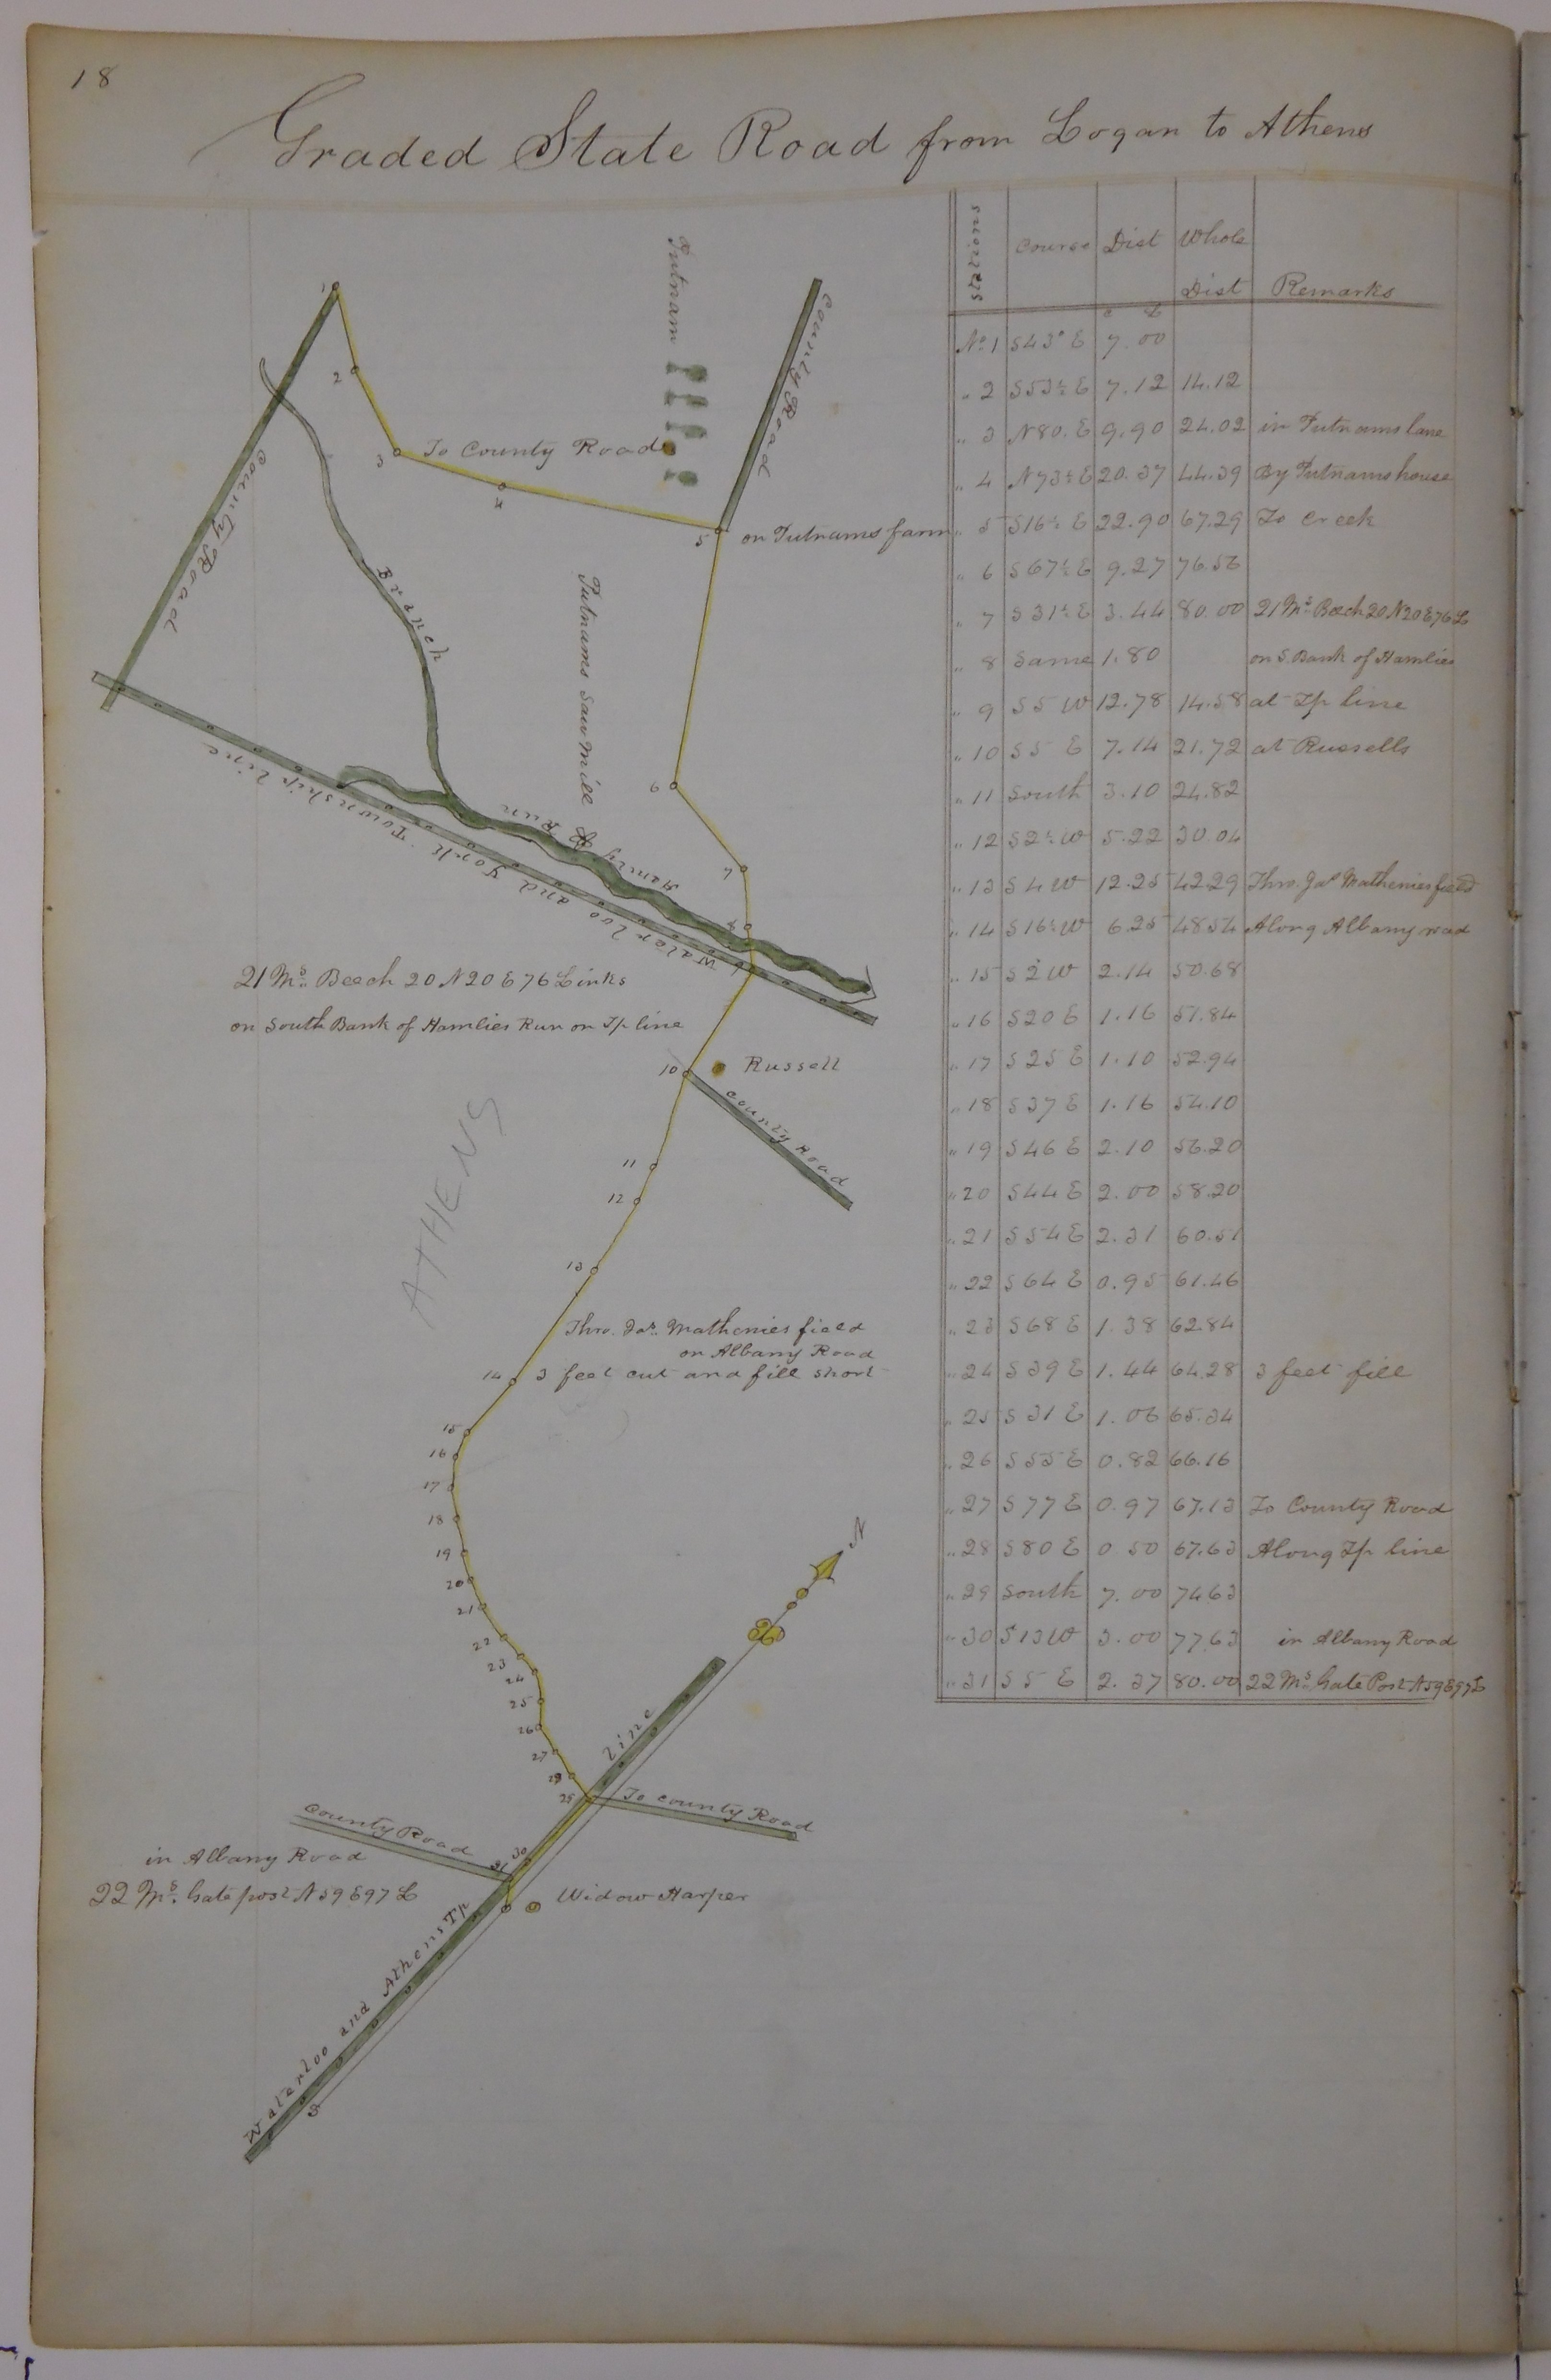 18
Graded State Road from Logan to Athens
Stations | Course | Dist | Whole Dist | Remarks
c L
No 1 | S43° E | 7.00
" 2 | S53½ E | 7.12 | 14.12
" 3 | N80. E | 9.90 | 24.02 | in Putnams lane
" 4 | N73½ E | 20.37 | 44.39 | By Putnams house
" 5 | S16½ E | 22.90 | 67.29 | To creek
" 6 | S67½ E | 9.27 | 76.56
" 7 | S31½ E | 3.44 | 80.00 | 21 Ms. Beech 20 N20 E 76 L
" 8 | Same | 1.80 | | on S. Bank of Hamlies
" 9 | S5 W | 12.78 | 14.58 | at Tp line
" 10 | S5 E | 7.14 | 21.72 | at Russells
" 11 | South | 3.10 | 24.82
" 12 | S2½ W | 5.22 | 30.04
" 13 | S4 W | 12.25 | 42.29 | Thro. Jas Mathenies field
" 14 | S16½ W | 6.25 | 48.54 | Along Albany road
" 15 | S2 W | 2.14 | 50.68
" 16 | S20 E | 1.16 | 51.84
" 17 | S25 E | 1.10 | 52.94
" 18 | S37 E | 1.16 | 54.10
" 19 | S46 E | 2.10 | 56.20
" 20 | S44 E | 2.00 | 58.20
" 21 | S54 E | 2.31 | 60.51
" 22 | S64 E | 0.95 | 61.46
" 23 | S68 E | 1.38 | 62.84
" 24 | S39 E | 1.44 | 64.28 | 3 feet fill
" 25 | S31 E | 1.06 | 65.34
" 26 | S55 E | 0.82 | 66.16
" 27 | S77 E | 0.97 | 67.13 | To County Road
" 28 | S80 E | 0.50 | 67.63 | Along Tp line
" 29 | South | 7.00 | 74.63
" 30 | S13 W | 3.00 | 77.63 | in Albany Road
" 31 | S5 E | 2.37 | 80.00 | 22 Ms. Gate Post N59 E97 L
Putnam
County Road
1
2
3
To County Road
4
5
on Putnams farm
County Road
Branch
Putnams Saw Mill
6
Hamley's Run
7
8
Waterloo and York Township line
21 Ms. Beech 20 N20 E 76 Links
on South Bank of Hamlies Run on Tp line
10
Russell
County Road
ATHENS
11
12
13
Thro. Jas. Mathenies field
on Albany Road
14
3 feet cut and fill short
15
16
17
18
19
20
21
22
23
24
25
26
27
N
line
To county Road
County Road
30
31
in Albany Road
22 Ms. Gate post N59 E97 L
Widow Harper
Waterloo and Athens Tp
S